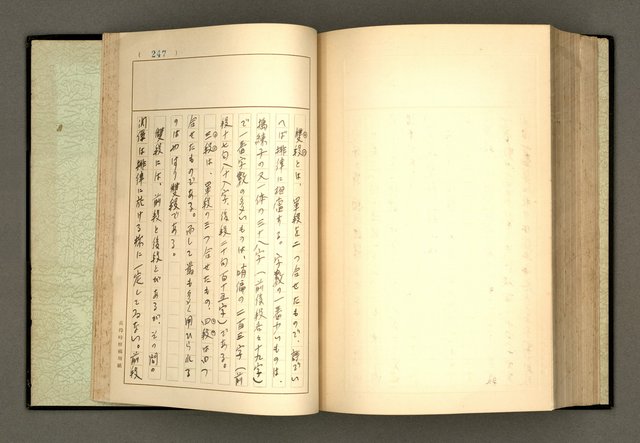 (247)
雙段とは、單段を二つ合せたもので、詩でい
へば排律に相當する。字數の一番少いものは、
搗練子の又一体の三十八字(前後段各々十九字)
で一番字數の多いものは、哨偏の二百三字(前
段十七句八十八字、後段二十句百十五字)である。
三段は、單段の三つ合せたもの、四段は四つ
合せたものである。而して最も多く用ひられる
のはやはり雙段である。
雙段には、前段と後段とがあるが、その間の
関係は排律に於ける様に一定してゐない。前段